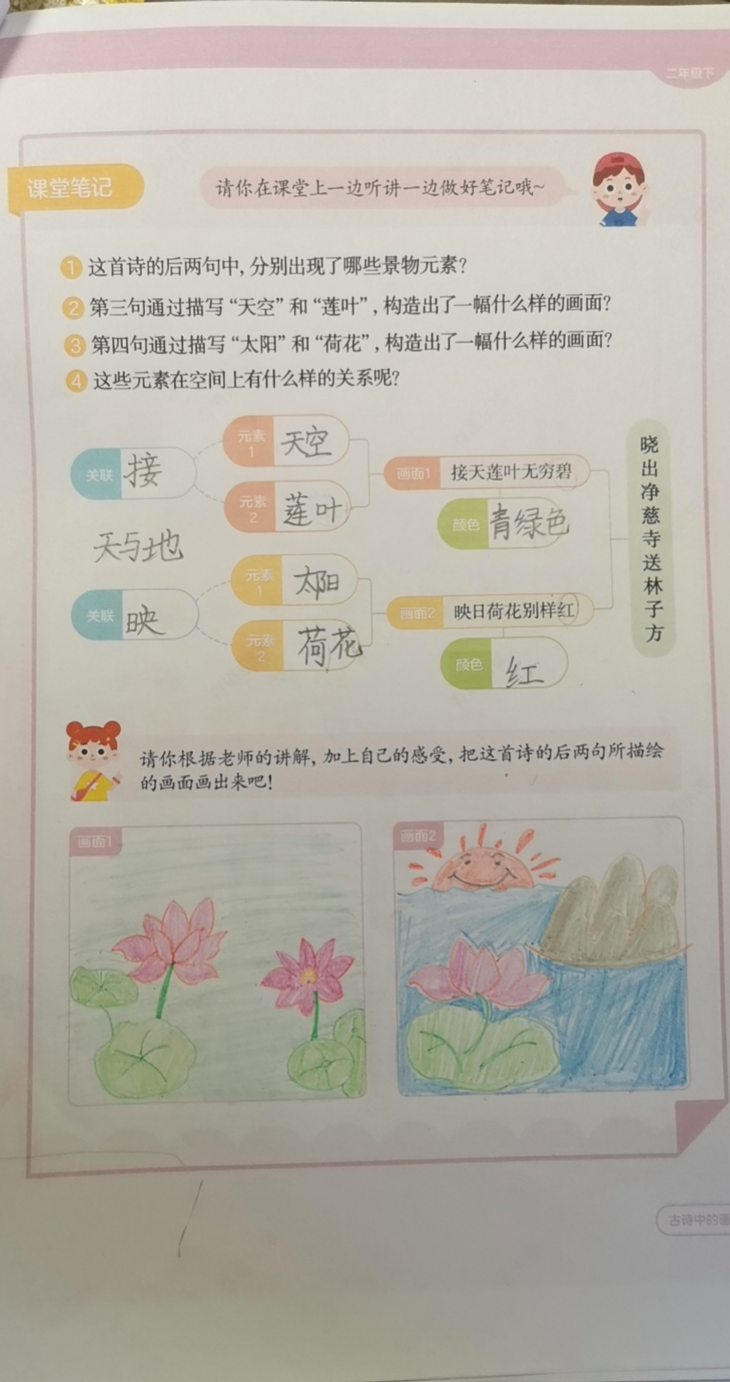 二年级下
课堂笔记
请你在课堂上一边听讲一边做好笔记哦~
1 这首诗的后两句中，分别出现了哪些景物元素？
2 第三句通过描写“天空”和“莲叶”，构造出了一幅什么样的画面？
3 第四句通过描写“太阳”和“荷花”，构造出了一幅什么样的画面？
4 这些元素在空间上有什么样的关系呢？
关联 接
元素1 天空
元素2 莲叶
画面1 接天莲叶无穷碧
颜色 青绿色
天与地
关联 映
元素1 太阳
元素2 荷花
画面2 映日荷花别样红
颜色 红
晓出净慈寺送林子方
请你根据老师的讲解，加上自己的感受，把这首诗的后两句所描绘
的画面画出来吧！
画面1
画面2
古诗中的画